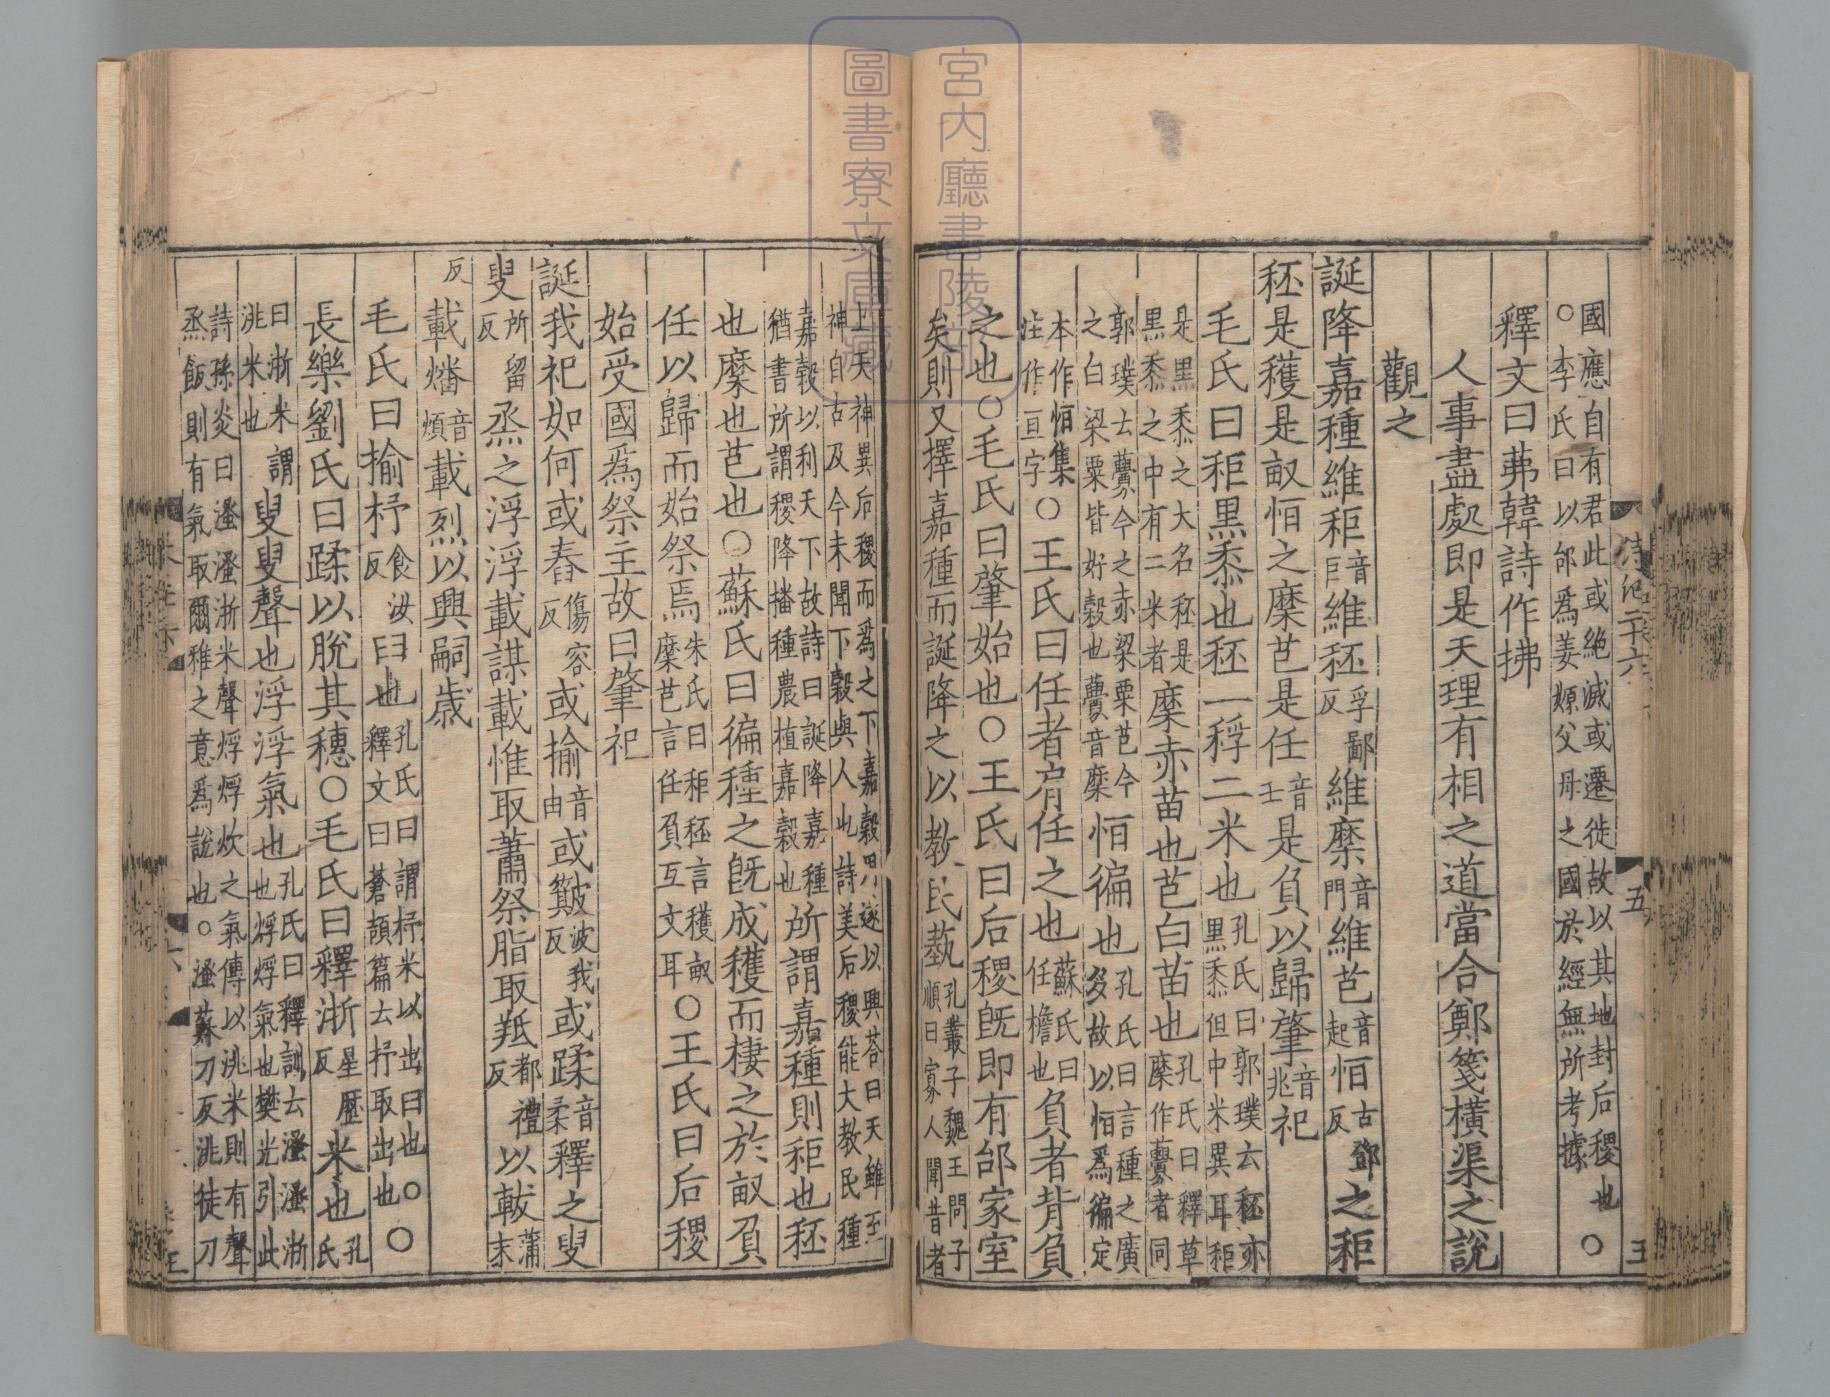 國應自有君此或絶滅或遷徙故以其地封后稷也○
○李氏曰以邰爲姜嫄父母之國於經無所考據
釋文曰茀韓詩作拂
人事盡處即是天理有相之道當合鄭箋横渠之說
觀之
誕降嘉種維秬音巨維秠孚鄙反維穈音門維芑音起恒古鄧反之秬
秠是穫是畝恒之穈芑是任音壬是負以歸肇音兆祀
毛氏曰秬黑黍也秠一稃二米也孔氏曰郭璞云秠亦黑黍但中米異耳秬
是黑黍之大名秠是黑黍之中有二米者穈赤苗也芑白苗也孔氏曰釋草穈作虋者同
郭璞云虋今之赤粱粟芑今之白粱粟皆好穀也虋音穈恒徧也孔氏曰言種之廣多故以恒爲徧定
本作恒集注作亘字○王氏曰任者肩任之也蘇氏曰任檐也負者背負
之也○毛氏曰肇始也○王氏曰后稷旣即有邰家室
矣則又擇嘉種而誕降之以敎民蓺孔叢子魏王問子順曰寡人聞昔者
上天神異后稷而爲之下嘉穀周遂以興荅曰天雖至
神自古及今未聞下穀與人也詩美后稷能大教民種
嘉穀以利天下故詩曰誕降嘉種猶書所謂稷降播種農植嘉穀也所謂嘉種則秬也秠
也穈也芑也○蘇氏曰徧種之旣成穫而棲之於畝負
任以歸而始祭焉朱氏曰秬秠言穫畝穈芑言任負互文耳○王氏曰后稷
始受國爲祭主故曰肇祀
誕我祀如何或舂傷容反或揄音由或簸波我反或蹂音柔釋之叟
叟所留反烝之浮浮載謀載惟取蕭祭脂取羝都禮反以軷蒲末
反載燔音煩載烈以興嗣歲
毛氏曰揄抒食汝反臼也孔氏曰謂抒米以出臼也○釋文曰蒼頡篇云抒取出也○
長樂劉氏曰蹂以脫其穗○毛氏曰釋淅星歷反米也孔氏
曰淅米謂洮米也叟叟聲也浮浮氣也孔氏曰釋訓云溞溞淅也烰烰氣也樊光引此
詩孫炎曰溞溞淅米聲烰烰炊之氣傳以洮米則有聲
烝飯則有氣取爾雅之意爲說也○溞蘇刀反洮徒刀
詩記二十六
五
六
宮内廳書陵部
圖書寮文庫藏